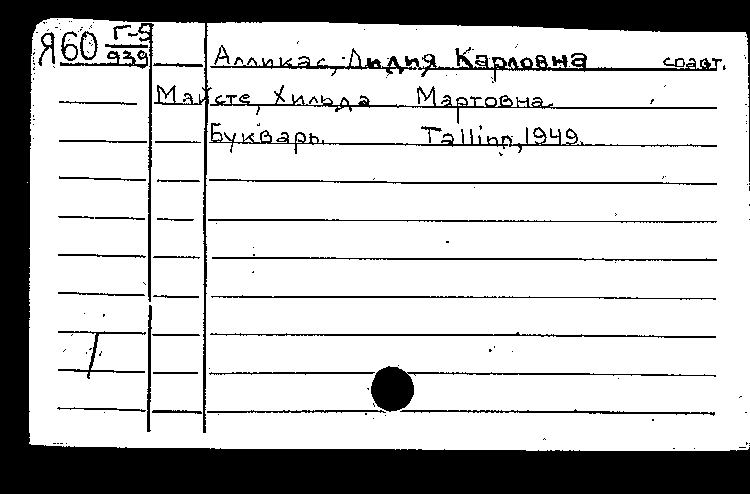 Я60 Г-5
939
Алликас, Лидия Карловна соавт.
Майсте, Хильда Мартовна.
Букварь. Tallinn, 1949.